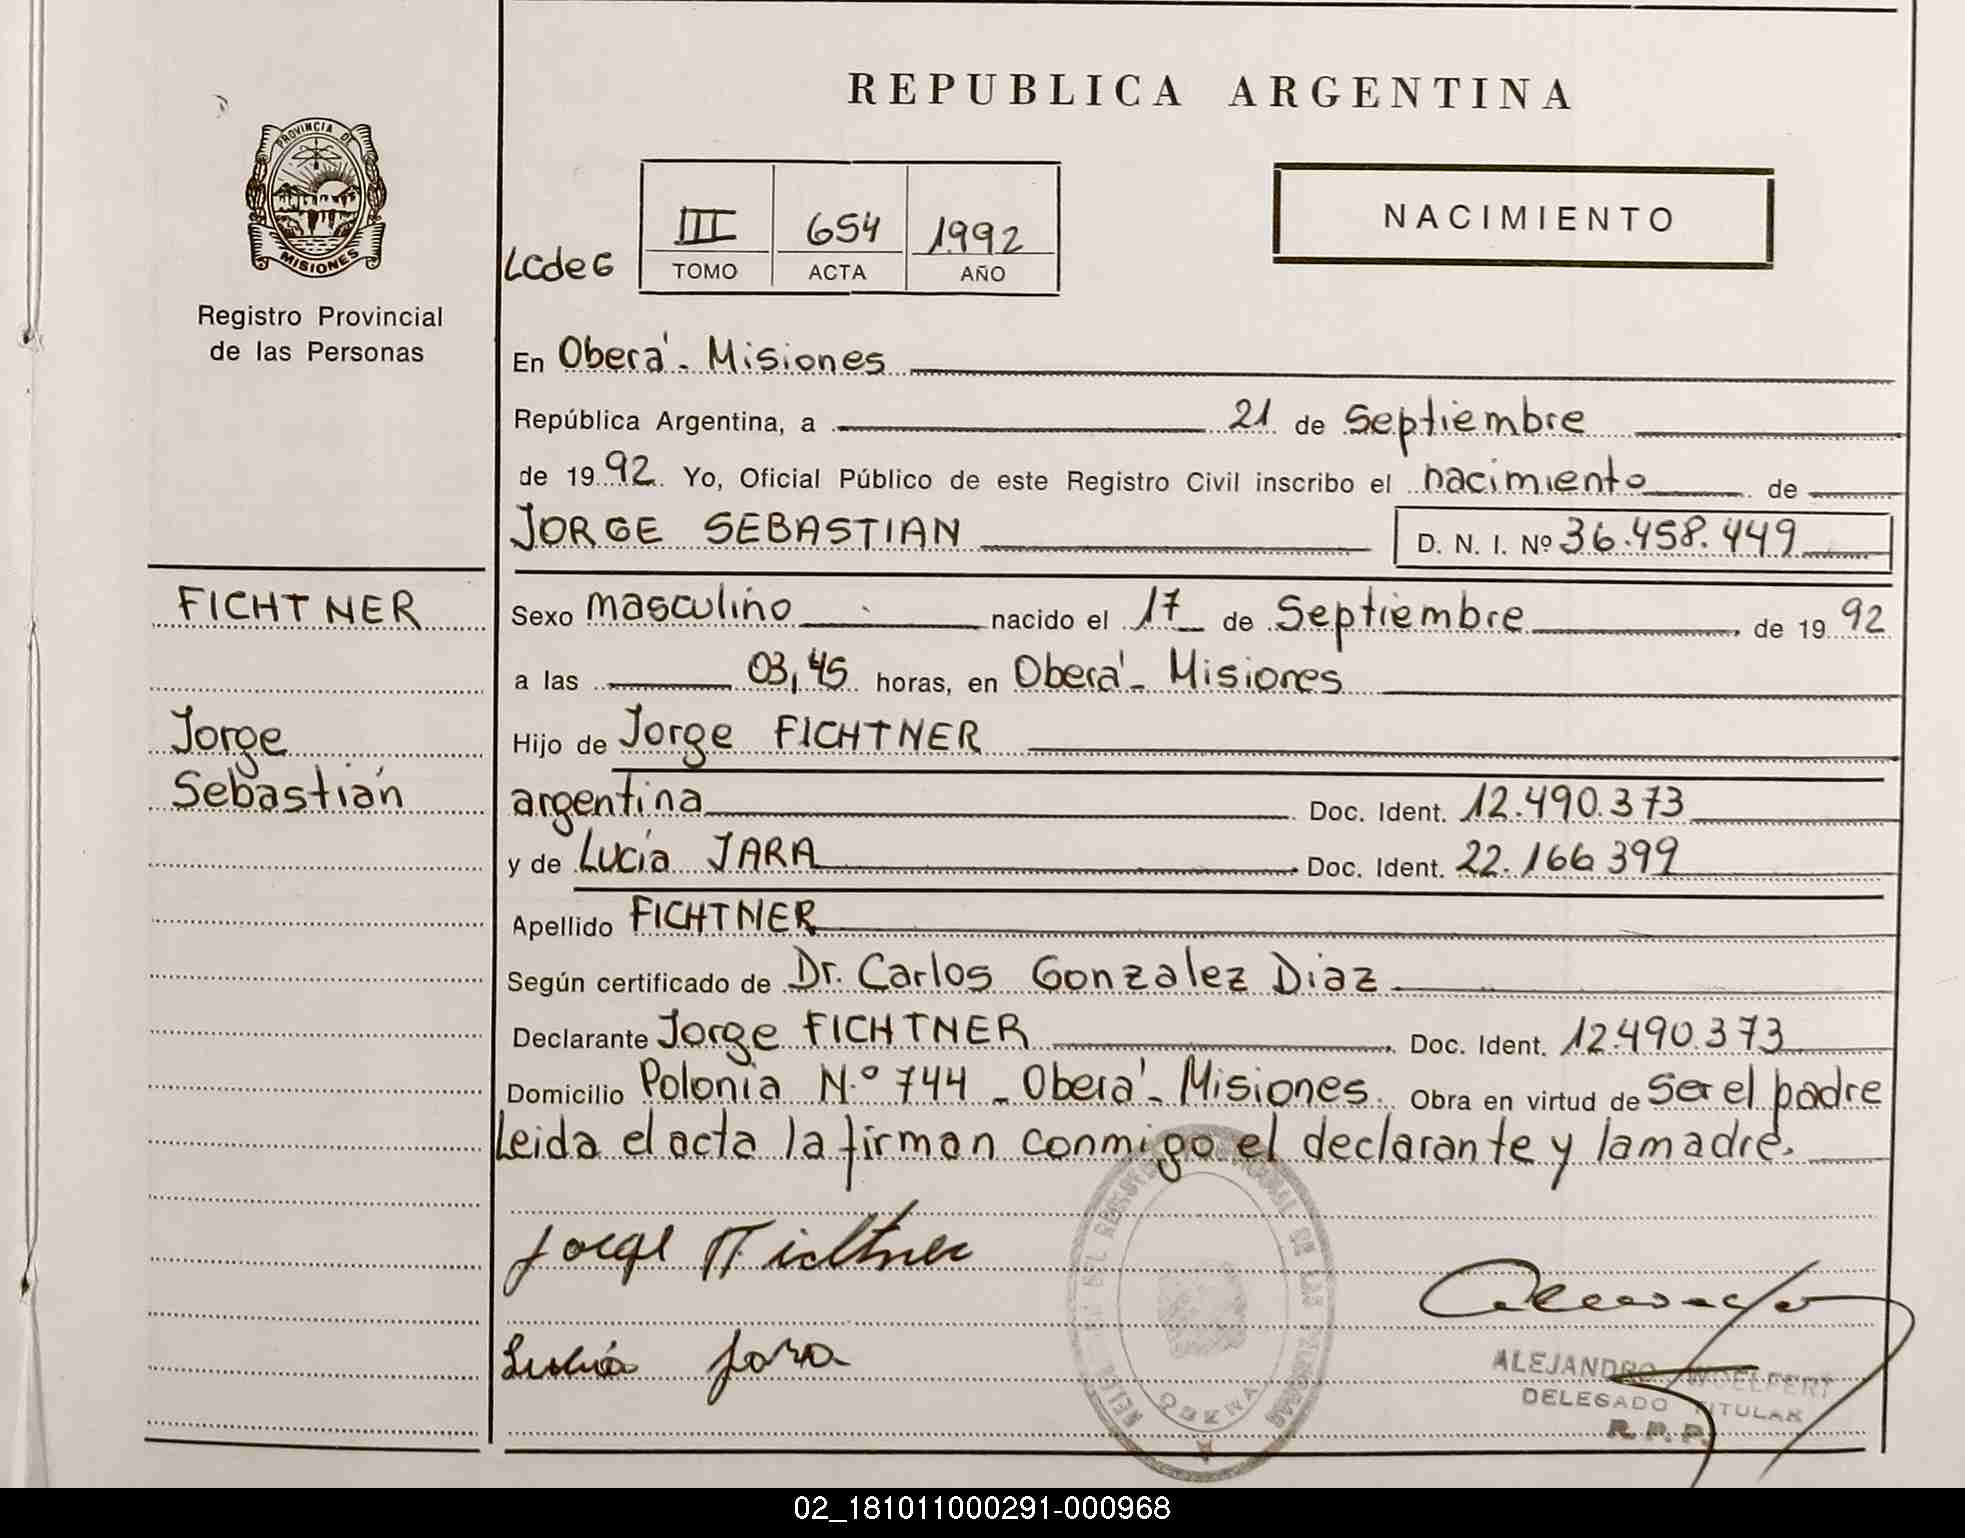 REPUBLICA ARGENTINA
PROVINCIA DE
MISIONES
Registro Provincial
de las Personas
LCdeG
III 654 1992
TOMO ACTA AÑO
NACIMIENTO
En Oberá - Misiones
República Argentina, a 21 de Septiembre
de 1992. Yo, Oficial Público de este Registro Civil inscribo el nacimiento de
JORGE SEBASTIAN D. N. I. Nº 36.458.449
FICHTNER
Jorge
Sebastián
Sexo masculino nacido el 17 de Septiembre de 1992
a las 03,45 horas, en Oberá - Misiones
Hijo de Jorge FICHTNER
argentina Doc. Ident. 12.490.373
y de Lucía JARA Doc. Ident. 22.166 399
Apellido FICHTNER
Según certificado de Dr. Carlos Gonzalez Diaz
Declarante Jorge FICHTNER Doc. Ident. 12.490.373
Domicilio Polonia N.º 744 - Oberá - Misiones. Obra en virtud de Ser el padre
Leida el acta la firman conmigo el declarante y la madre.
Jorge Fichtner
Lucia Jara
OBERA
ALEJANDRO WOELFERT
DELEGADO TITULAR
R. P. P.
02_181011000291-000968